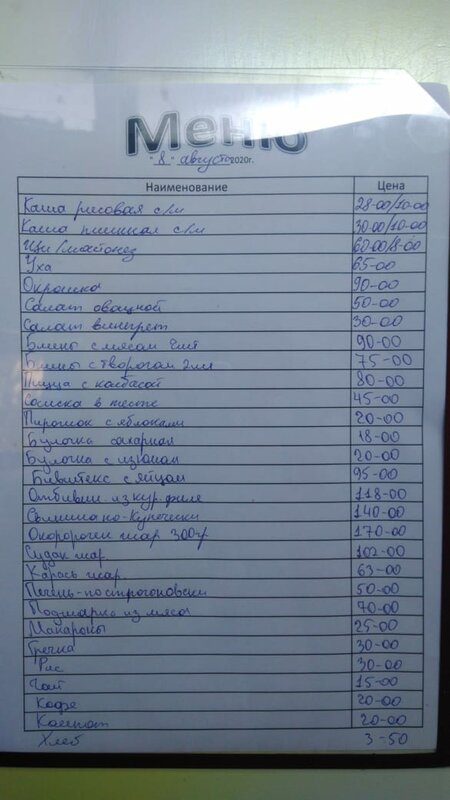 Меню
"8" августа 2020г.
Наименование Цена
Каша рисовая с/м 28-00/10-00
Каша пшинная с/м 30-00/10-00
Щи/майонез 60-00/8-00
Уха 65-00
Окрошка 90-00
Салат овощной 50-00
Салат винегрет 30-00
Блины с мясом 90-00
Блины с творогом 75-00
Пицца с колбасой 80-00
Сосиска в тесте 45-00
Пирожок с яблоками 20-00
Булочка сахарная 18-00
Булочка с изюмом 20-00
Бивштекс с яйцом 95-00
Отбивн из кур. филе 118-00
Свинина по-Купечески 140-00
Окорочок жар 300гр 170-00
Судак жар. 102-00
Карась жар. 63-00
Печень-по строгоновски 50-00
Поджарка из мяса 70-00
Макароны 25-00
Гречка 30-00
Рис 30-00
Чай 15-00
Кофе 20-00
Компот 20-00
Хлеб 3-50